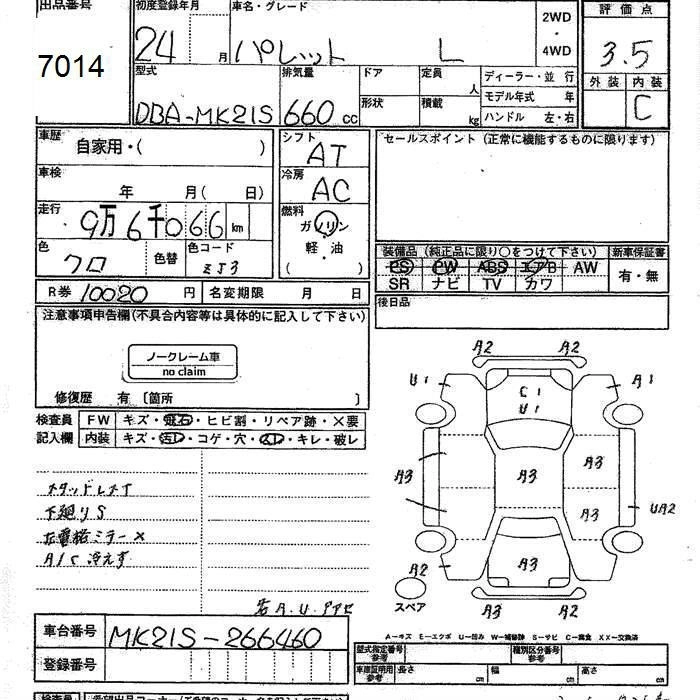 出品番号 初度登録年月 車名・グレード 2WD・4WD 評価点
7014 24 月 パレット L 3.5
型式 排気量 ドア 定員 人 ディーラー・並 行 外装 内装
形状 積載 kg モデル年式 年
DBA-MK21S 660 cc ハンドル 左・右 C
車歴 自家用・( ) シフト AT セールスポイント (正常に機能するものに限ります)
車検 年 月( 日) 冷房 AC
走行 9万6千066 km 燃料 ガソリン・軽・油 ( )
色 クロ 色替 色コード ZJ3
装備品 (純正品に限り○をつけて下さい) 新車保証書
PS PW ABS エアB AW 有・無
SR ナビ TV カワ
R券 10020 円 名変期限 月 日 後日品
注意事項申告欄(不具合内容等は具体的に記入して下さい)
ノークレーム車
no claim
修復歴 有 〔箇所 〕
検査員 FW キズ・飛石・ヒビ割・リペア跡・X要
記入欄 内装 キズ・汚レ・コゲ・穴・スレ・キレ・破レ
A2 A2
U1 A1
C1
U1
A3 A3 A3
A3 UA2
A2 A3
スペア A3 A2
スタッドレスT
下廻りS
左電格ミラー×
A/C 冷えず
A.U
A-キズ E-エクボ U-凹み W-補修跡 S-サビ C-腐食 XX-交換済
車台番号 MK21S-266460
登録番号
型式指定番号 参考 種別区分番号 参考
車庫証明用 参考 長さ cm 幅 cm 高さ cm